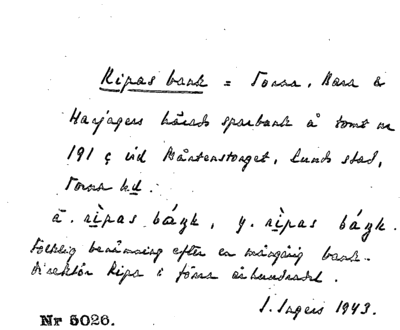 Ripas bank = Torna, Bara &
Harjagers härads sparbank å tomt nr
191 ç vid Mårtenstorget, Lunds stad,
Torna hd.
ä. rìpas báŋk, y. rìpas báŋk.
Folklig benämning efter en mångårig bank-
direktör Ripa i förra århundradet.
I. Ingers 1943.
Nr 5026.